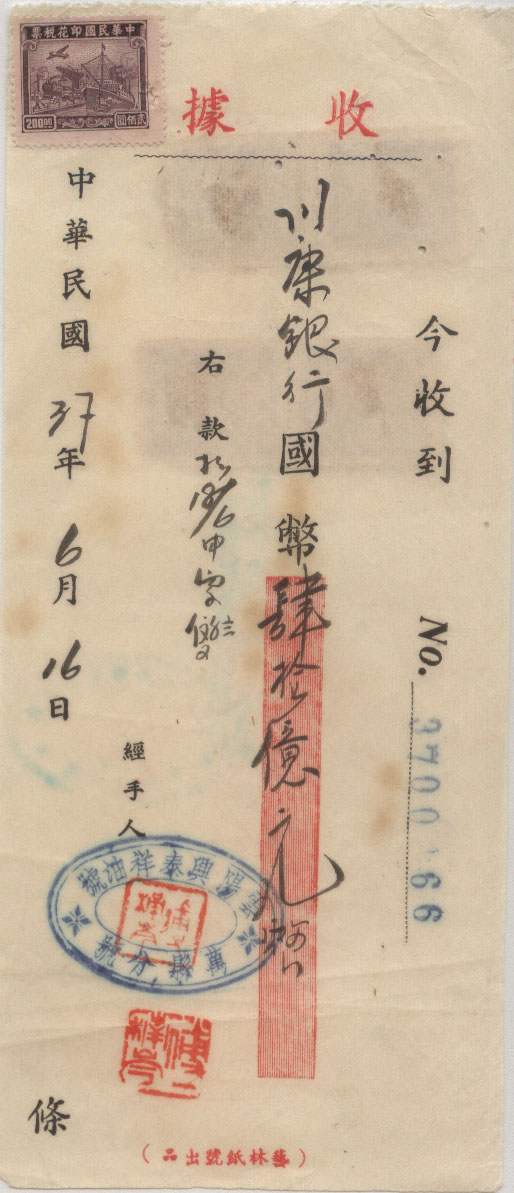 中華民國印花稅票
200.00
貳佰圓
收據
今收到
No. 3700166
川康銀行國幣肆拾億元
右款
中華民國37年6月16日
經手人
興泰祥油號
萬縣分號
條
(藝林紙號出品)